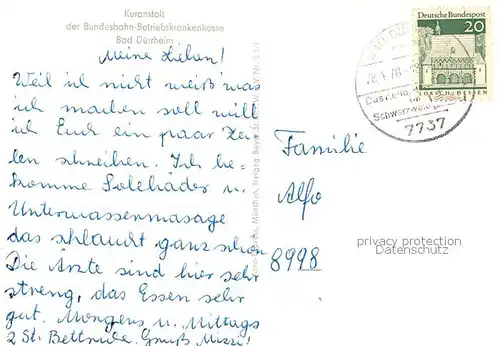 Kuranstalt
der Bundesbahn-Betriebskrankenkasse
Bad Dürrheim
Meine Lieben!
Weil ich nicht weiß was
ich machen soll will
ich Euch ein paar Zei-
len schreiben. Ich be-
komme Solebäder u.
Unterwassermassage
das schlaucht ganz schön
Die Ärzte sind hier sehr
streng, das Essen sehr
gut. Morgens u. Mittags
2 St. Bettruhe. Gruß Mizzi!
Deutsche Bundespost
20
LORSCH/HESSEN
Schwarzwald
7737
Familie
Alfo
8998
privacy protection
Datenschutz